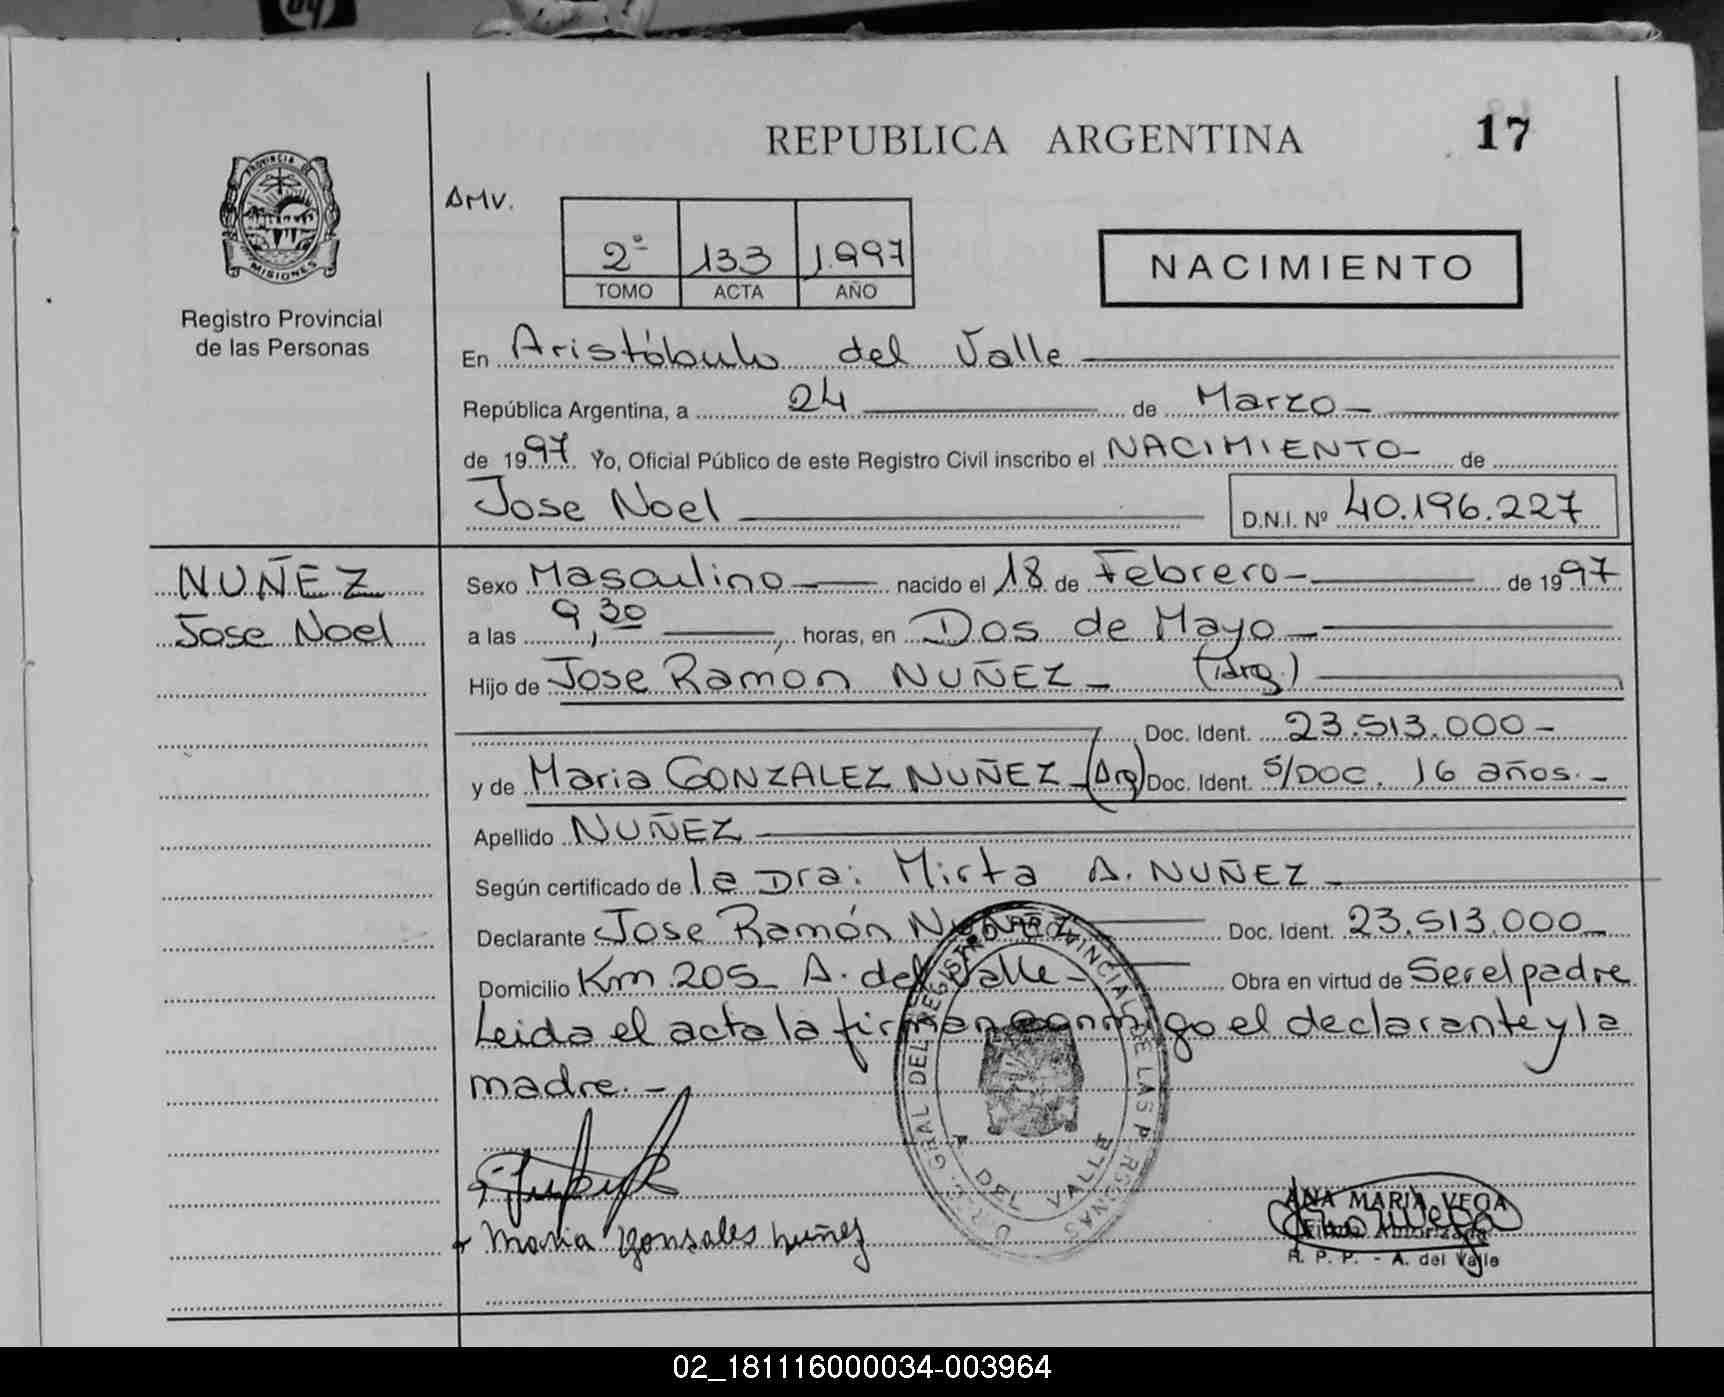 hp
REPUBLICA ARGENTINA
17
PROVINCIA DE
MISIONES
Registro Provincial
de las Personas
AMV.
2º 133 1.997
TOMO ACTA AÑO
NACIMIENTO
En Aristóbulo del Valle
República Argentina, a 24 de Marzo
de 1997. Yo, Oficial Público de este Registro Civil inscribo el NACIMIENTO de
Jose Noel D.N.I. Nº 40.196.227
NUÑEZ
Jose Noel
Sexo Masculino nacido el 18 de Febrero de 1997
a las 9,30 horas, en Dos de Mayo
Hijo de Jose Ramon NUÑEZ (Arg.)
Doc. Ident. 23.513.000
y de Maria GONZALEZ NUÑEZ (Arg) Doc. Ident. S/DOC. 16 años.
Apellido NUÑEZ
Según certificado de la Dra: Mirta A. NUÑEZ
Declarante Jose Ramón NUÑEZ Doc. Ident. 23.513.000
Domicilio Km 205 A. del Valle Obra en virtud de Ser el padre
Leida el acta la firman conmigo el declarante y la
madre.
GRAL DEL REGISTRO PROVINCIAL DE LAS PERSONAS
DEL VALLE
Maria Gonsales nuñez
ANA MARIA VEGA
R. P. P. - A. del Valle
02_181116000034-003964